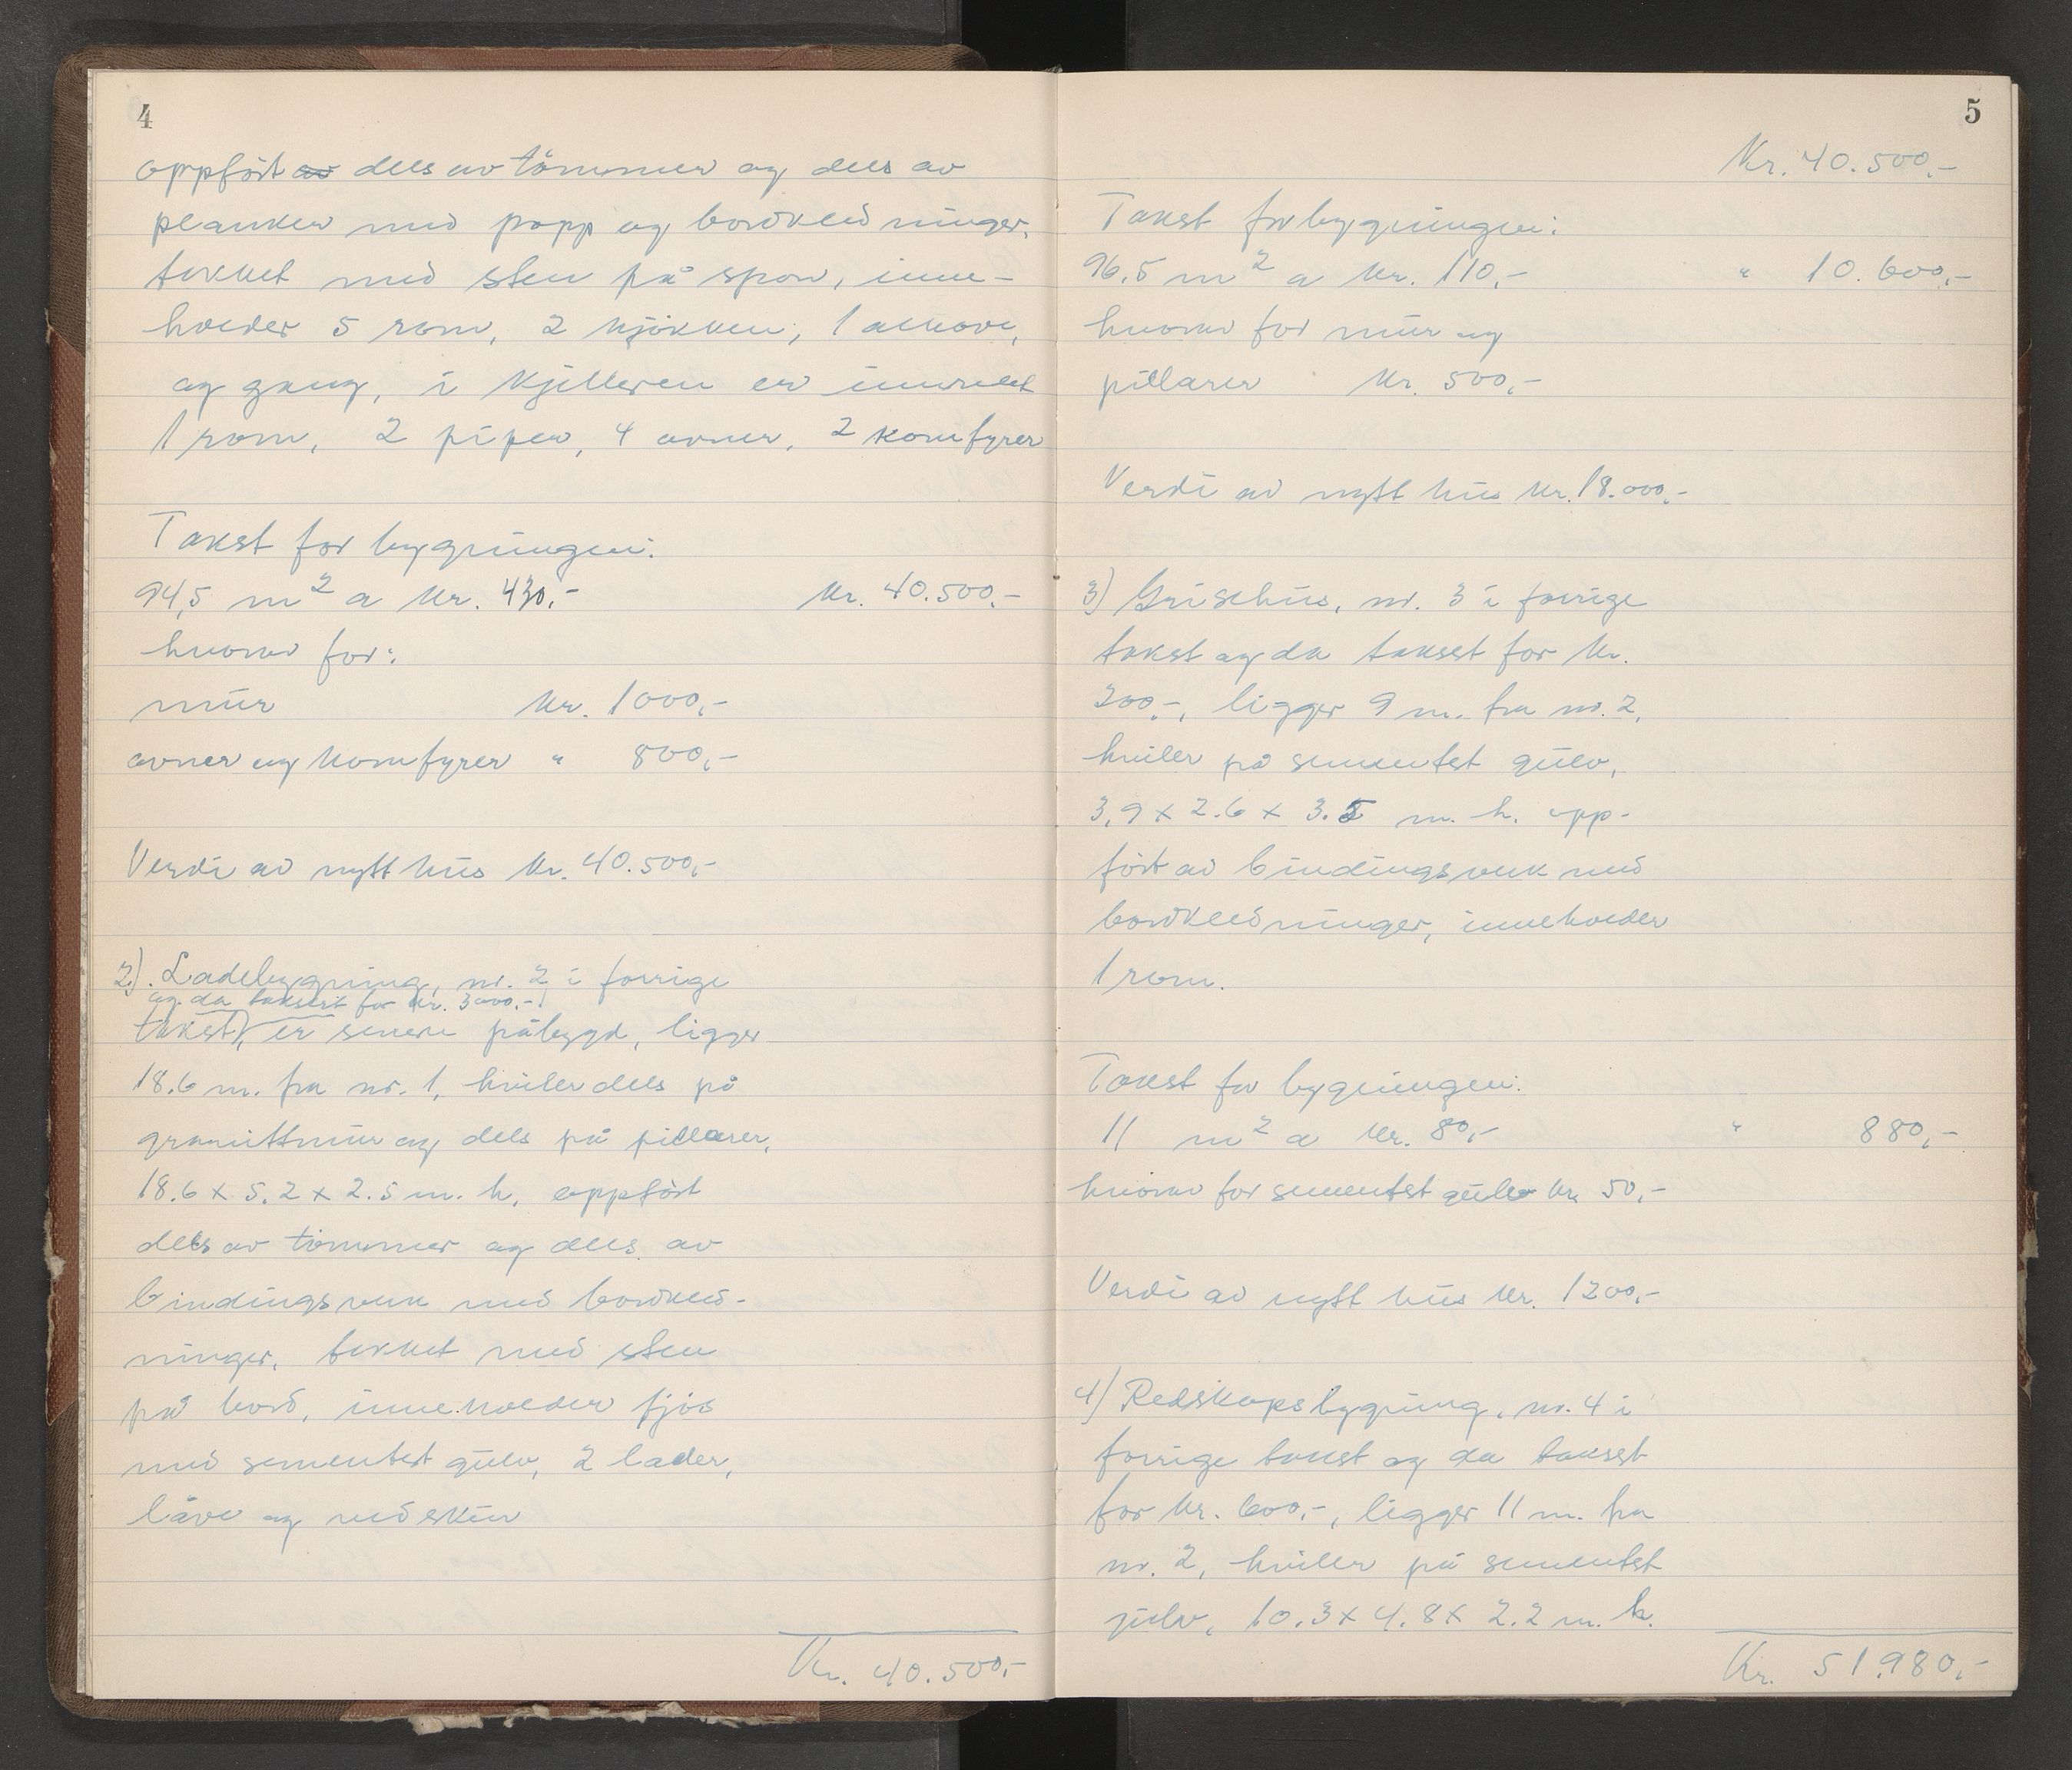 4
oppført av dels av tømmer og dels av
planker med papp og bordkledninger,
tekket med sten på spon, inne-
holder 5 rom, 2 kjøkken, 1 alkove,
og gang, i kjelleren er innredet
1 rom, 2 piper, 4 ovner, 2 komfyrer
Takst for bygningen:
94,5 m² a kr. 430,- kr. 40.500,-
hvorav for:
mur kr. 1000,-
ovner og komfyrer " 800,-
Verdi av nytt hus kr. 40.500,-
2). Ladebygning, nr. 2 i forrige
og da taksert for kr. 3000,-
takst, er senere påbygd, ligger
18.6 m. fra nr. 1, hviler dels på
granittmur og dels på pillarer,
18.6 x 5.2 x 2.5 m. h, oppført
dels av tømmer og dels av
bindingsverk med bordkled-
ninger, tekket med sten
på bord, inneholder fjøs
med sementert gulv, 2 lader,
låve og vedskur
Kr. 40.500,-
5
Kr. 40.500,-
Takst for bygningen:
96.5 m² a kr. 110,- " 10.600,-
hvorav for mur og
pillarer kr. 500,-
Verdi av nytt hus kr. 18.000,-
3) Grisehus, nr. 3 i forrige
takst og da takset for kr.
200,-, ligger 9 m. fra nr. 2,
hviler på sementet gulv,
3.9 x 2.6 x 3.5 m. h. opp-
ført av bindingsverk med
bordkledninger, inneholder
1 rom.
Takst for bygningen:
11 m² a kr. 80,- " 880,-
hvorav for sementet gulv kr. 50,-
Verdi av nytt hus kr. 1200,-
4) Redskapsbygning, nr. 4 i
forrige takst og da takset
for kr. 600,-, ligger 11 m. fra
nr. 2, hviler på sementet
gulv, 10.3 x 4.8 x 2.2 m. h.
Kr. 51.980,-